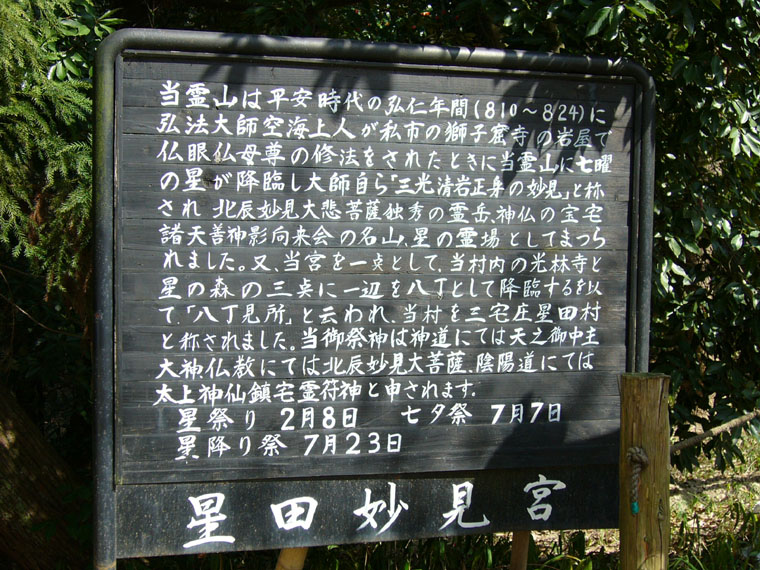 当霊山は平安時代の弘仁年間(810〜824)に
弘法大師空海上人が私市の獅子窟寺の岩屋で
仏眼仏母尊の修法をされたときに当霊山に七曜
の星が降臨し大師自ら「三光清岩正身の妙見」と称
され 北辰妙見大悲菩薩独秀の霊岳、神仏の宝宅
諸天善神影向来会の名山、星の霊場としてまつら
れました。又、当宮を一点として、当村内の光林寺と
星の森の三点に一辺を八丁として降臨するを以
て「八丁見所」と云われ、当村を三宅庄星田村
と称されました。当御祭神は神道にては天之御中主
大神仏教にては北辰妙見大菩薩、陰陽道にては
太上神仙鎮宅霊符神と申されます。
星祭り 2月8日 七夕祭 7月7日
星降り祭 7月23日
星田妙見宮